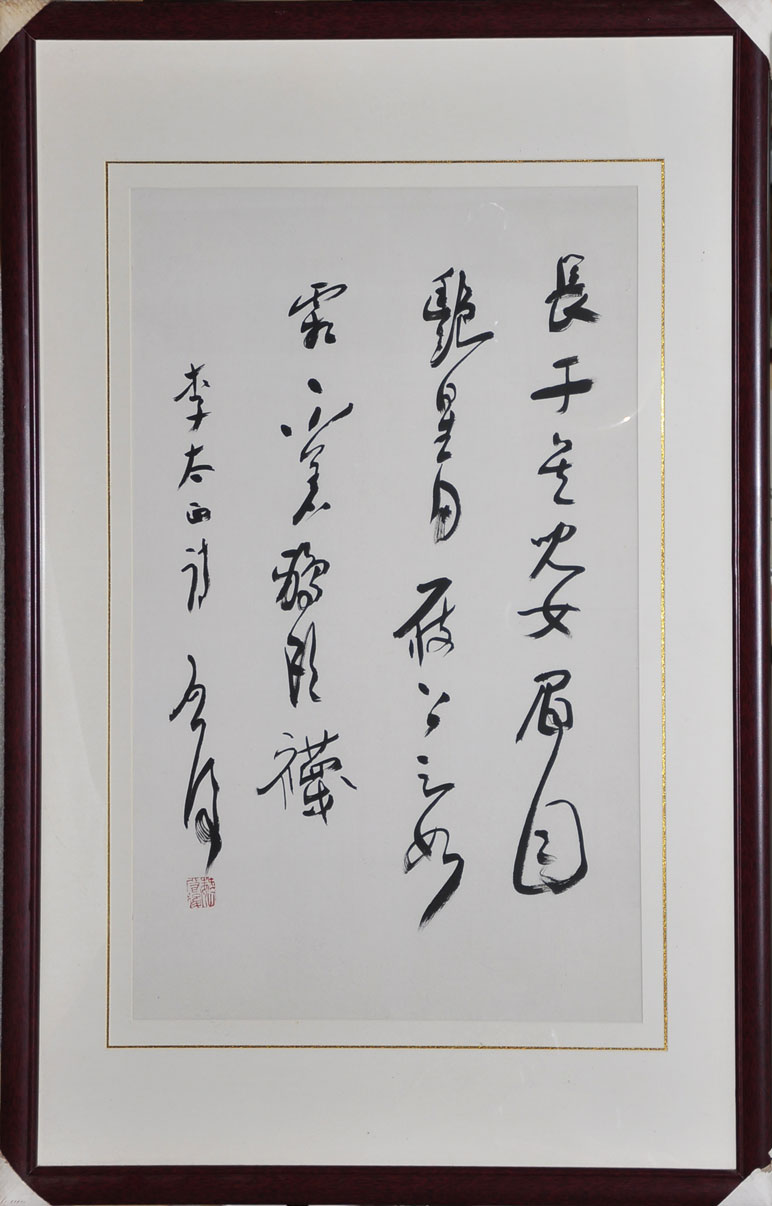 長干吳兒女眉目
艷星月屐上足如
霜不着鴉頭襪
李太白詩